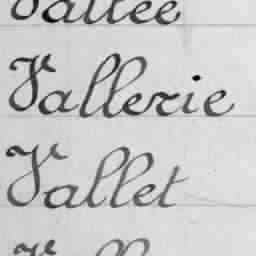 Vallée
Vallerie
Vallet